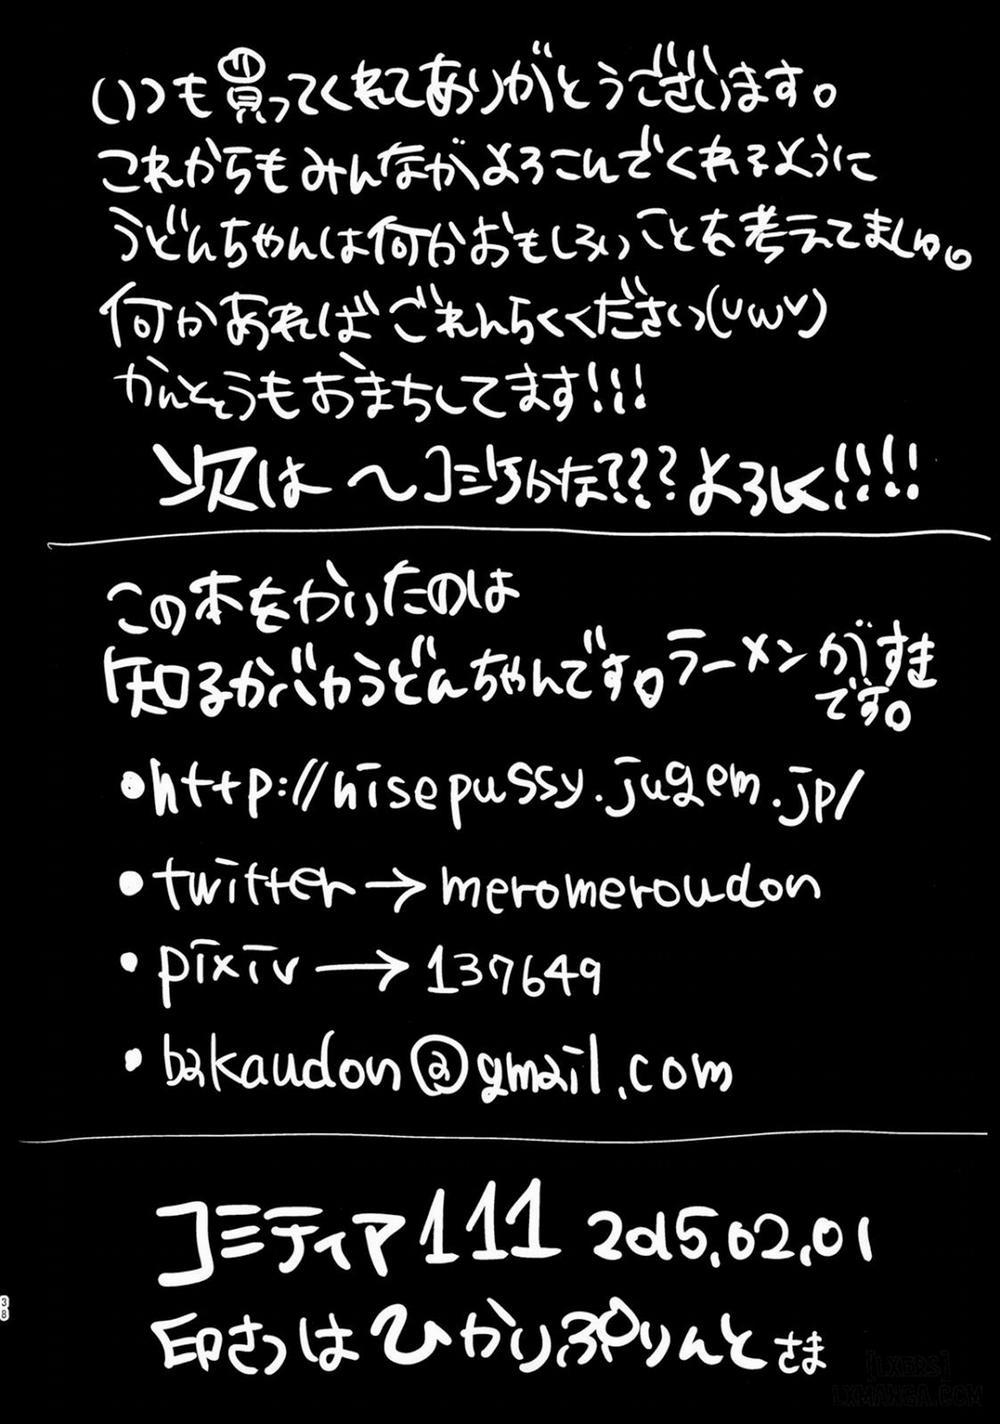 いつも買ってくれてありがとうございます。
これからもみんながよろこんでくれるように
うどんちゃんは何かおもしろいことを考えてましゅ。
何かあればごれんらくください(UωU)
かんそうもおまちしてます!!!
次は〜コミケかな???よろしく!!!!
この本をかいたのは
知るかバカうどんちゃんです。ラーメンがすき
です。
•http://nisepussy.jugem.jp/
•twitter→meromeroudon
•pixiv→137649
•bakaudon@gmail.com
コミティア111 2015.02.01
印さつはひかりぷりんとさま
38
[LXERS]
LXMANGA.COM